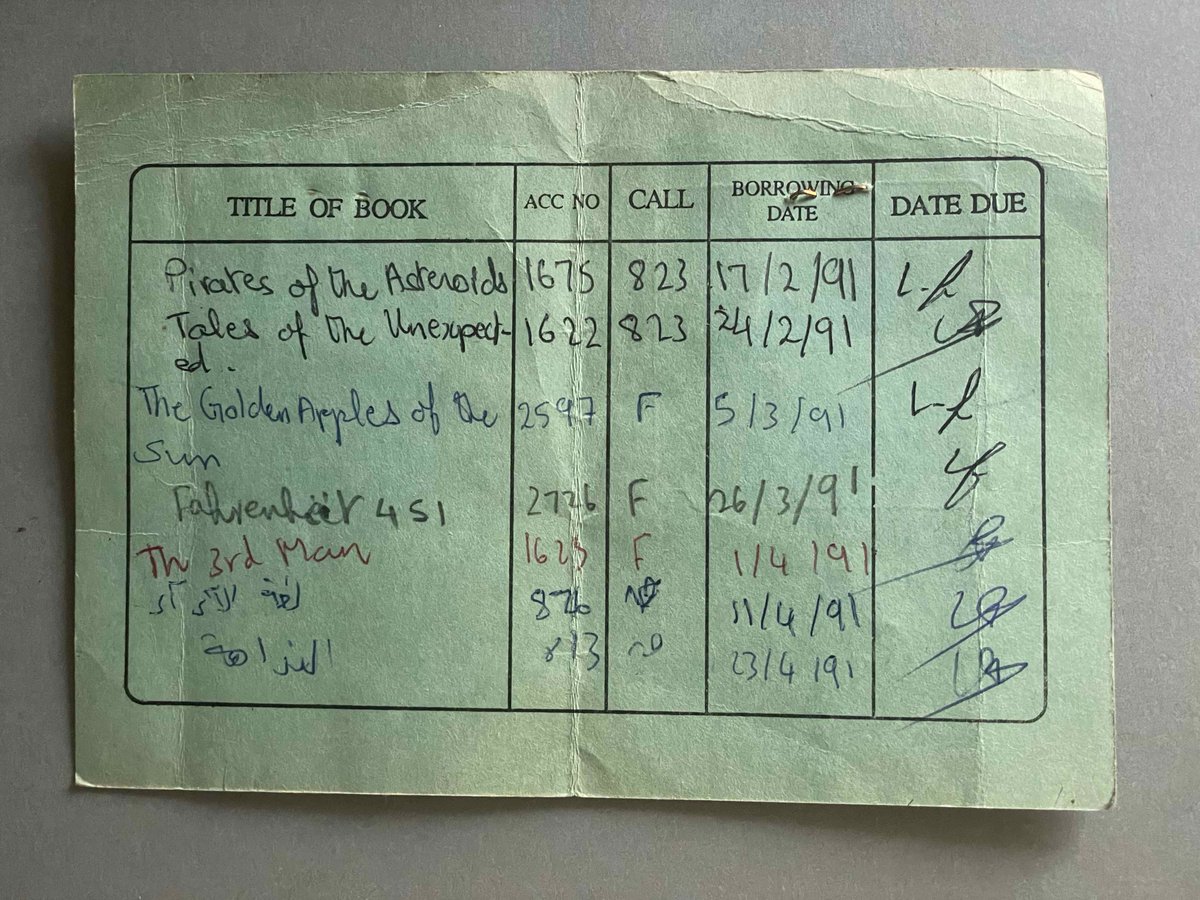 TITLE OF BOOK ACC NO CALL BORROWING DATE DATE DUE
Pirates of the Asteroids 1675 823 17/2/91
Tales of the Unexpect- 1622 823 24/2/91
ed.
The Golden Apples of the 2597 F 5/3/91
Sun
Fahrenheit 451 2726 F 26/3/91
Th 3rd Man 1623 F 1/4/91
لغة 876 11/4/91
23/4/91